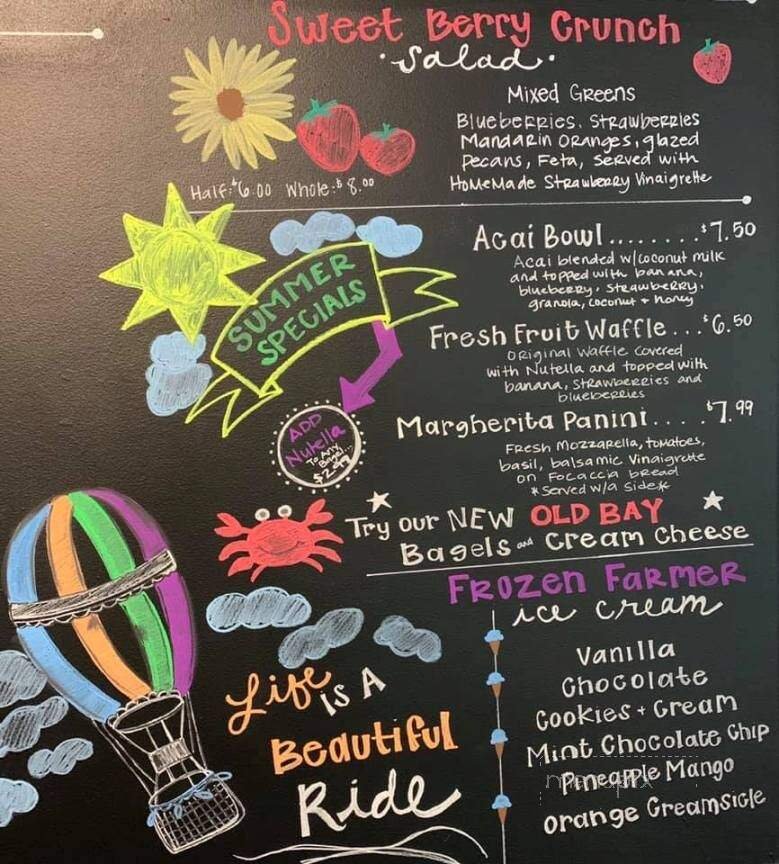 Sweet Berry Crunch
Salad
Mixed Greens
Blueberries, Strawberries
Mandarin Oranges, glazed
Pecans, Feta, served with
HoMeMade Strawberry Vinaigrette
Half: $6.00 Whole: $8.00
Acai Bowl........$7.50
Acai blended w/coconut milk
and topped with banana,
blueberry, strawberry,
granola, coconut + honey
SUMMER
SPECIALS
Fresh Fruit Waffle...$6.50
Original Waffle covered
with Nutella and topped with
banana, strawberries and
blueberries
ADD
Nutella
To Any
Bagel...
$2.49
Margherita Panini.....$7.99
Fresh Mozzarella, tomatoes,
basil, balsamic Vinaigrette
on Focaccia bread
*Served w/a Side*
Try our NEW OLD BAY
Bagels and Cream Cheese
Frozen Farmer
ice cream
Vanilla
Chocolate
Cookies + Cream
Mint Chocolate Chip
Pineapple Mango
Orange Creamsicle
Life is A
Beautiful
Ride